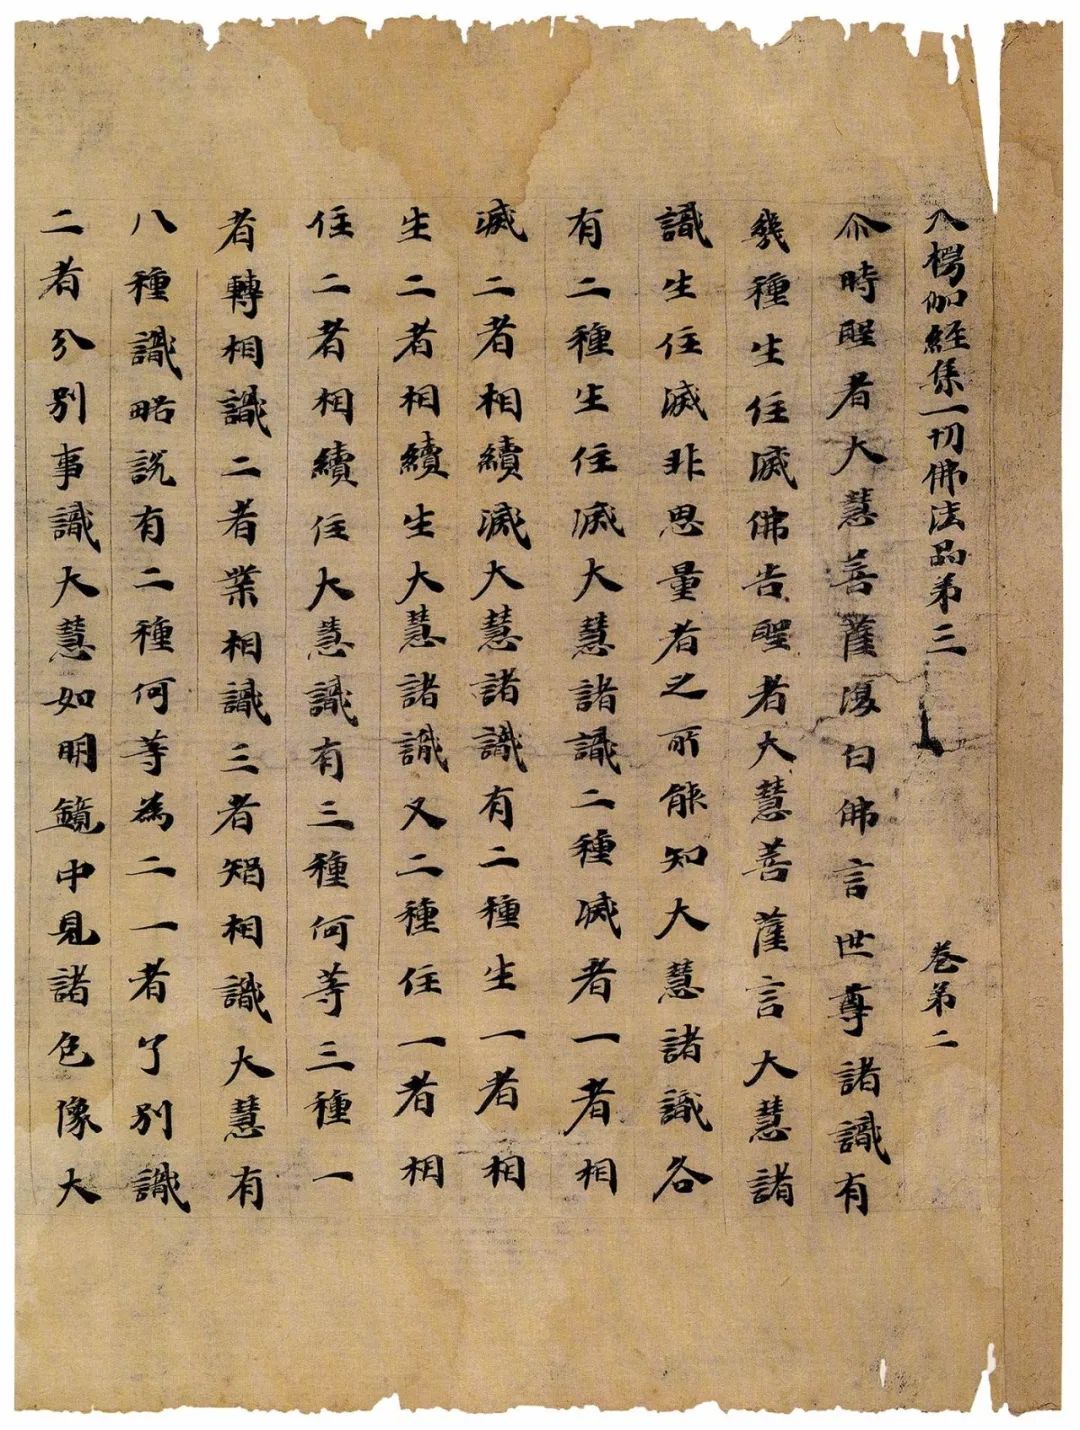 入楞伽經集一切佛法品第三 卷第二
尒時聖者大慧菩薩復白佛言世尊諸識有
幾種生住滅佛告聖者大慧菩薩言大慧諸
識生住滅非思量者之所能知大慧諸識各
有二種生住滅大慧諸識二種滅者一者相
滅二者相續滅大慧諸識有二種生一者相
生二者相續生大慧諸識又二種住一者相
住二者相續住大慧識有三種何等三種一
者轉相識二者業相識三者智相識大慧有
八種識略說有二種何等為二一者了別識
二者分別事識大慧如明鏡中見諸色像大